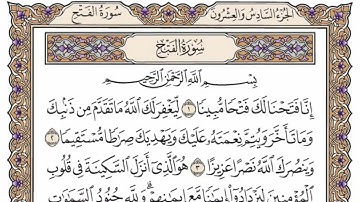 الجزء السادس والعشرون سورة الفتح
سورة الفتح
بسم الله الرحمن الرحيم
إِنَّا فَتَحْنَا لَكَ فَتْحًا مُّبِينًا ١ لِّيَغْفِرَ لَكَ اللَّهُ مَا تَقَدَّمَ مِن ذَنبِكَ
وَمَا تَأَخَّرَ وَيُتِمَّ نِعْمَتَهُ عَلَيْكَ وَيَهْدِيَكَ صِرَاطًا مُّسْتَقِيمًا ٢
وَيَنصُرَكَ اللَّهُ نَصْرًا عَزِيزًا ٣ هُوَ الَّذِي أَنزَلَ السَّكِينَةَ فِي قُلُوبِ
الْمُؤْمِنِينَ لِيَزْدَادُوا إِيمَانًا مَّعَ إِيمَانِهِمْ وَلِلَّهِ جُنُودُ السَّمَاوَاتِ